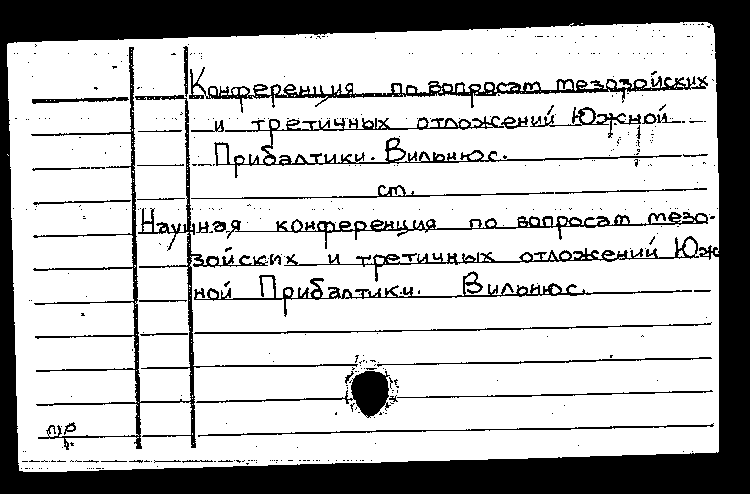 Конференция по вопросам мезозойских
и третичных отложений Южной
Прибалтики. Вильнюс.
ст.
Научная конференция по вопросам мезо-
зойских и третичных отложений Юж
ной Прибалтики. Вильнюс.